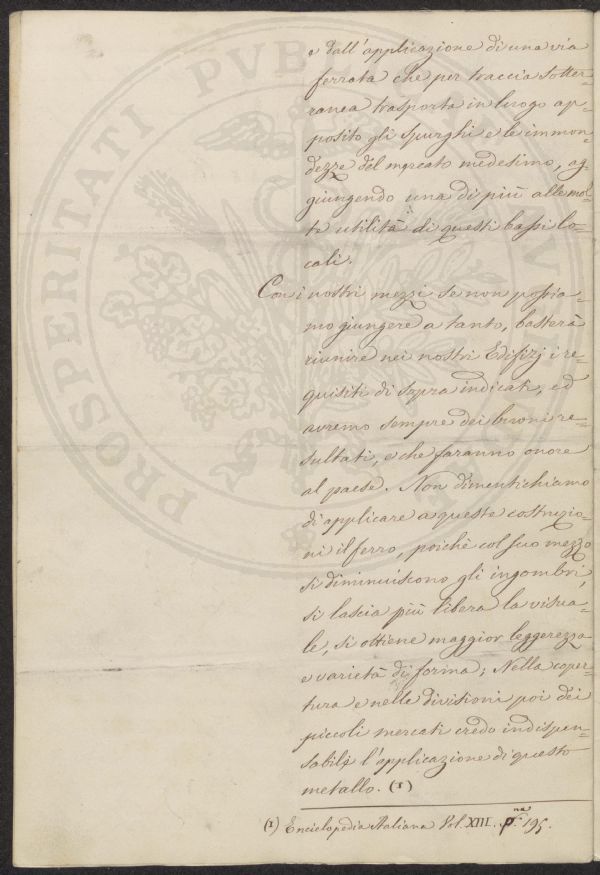 e dall'applicazione di una via
ferrata che per traccia sotter=
ranea trasporta in luogo ap=
posito gli spurghi e le immon=
dezze del mercato medesimo, ag=
giungendo una di più alle mol=
te utilità di questi bassi lo=
cali.
Con i nostri mezzi se non possia=
mo giungere a tanto, basterà
riunire nei nostri Edifizj i re=
quisiti di sopra indicati, ed
avremo sempre dei buoni re=
sultati, e che faranno onore
al paese. Non dimentichiamo
di applicare a queste costruzio=
ni il ferro, poichè col suo mezzo
si diminuiscono gli ingombri,
si lascia più libera la visua=
le, si ottiene maggior leggerezza
e varietà di forma; Nella coper=
tura e nelle divisioni poi dei
piccoli mercati credo indispen=
sabile l'applicazione di questo
metallo. (1)
(1) Enciclopedia Italiana Vol. XIII. p.na 195.
PROSPERITATI PVB